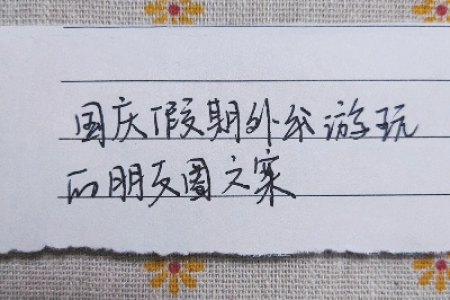 国庆假期外出游玩
的朋友圈文案